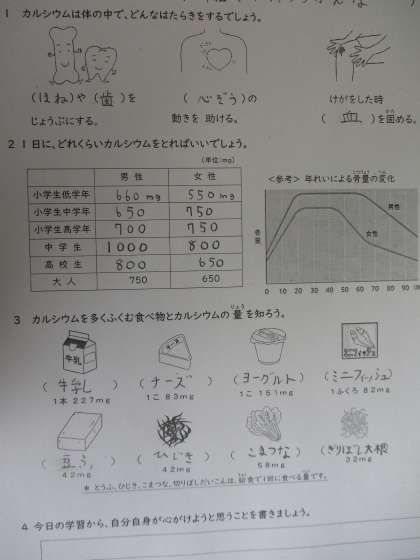 1 カルシウムは体の中で、どんなはたらきをするでしょう。
(ほね)や(歯)を
じょうぶにする。
(心ぞう)の
動きを 助ける。
けがをした時
(血)を固める。
かた
2 1日に、どれくらいカルシウムをとればいいでしょう。
(単位:mg)
男性 女性
小学生低学年 660mg 550mg
小学生中学年 650 750
小学生高学年 700 750
中学生 1000 800
高校生 800 650
大人 750 650
<参考> 年れいによる骨量の変化
骨量
男性
女性
0 10 20 30 40 50 60 70 80 90
3 カルシウムを多くふくむ食べ物とカルシウムの量を知ろう。
りょう
牛乳
チーズ
(牛乳) (チーズ) (ヨーグルト) (ミニフィッシュ)
1本 227mg 1こ 83mg 1こ 151mg 1ふくろ 82mg
(豆ふ) (ひじき) (こまつな) (きりぼし大根)
42mg 42mg 58mg 32mg
※ とうふ、ひじき、こまつな、切りぼしだいこんは、給食で1回に食べる量です。
4 今日の学習から、自分自身が心がけようと思うことを書きましょう。